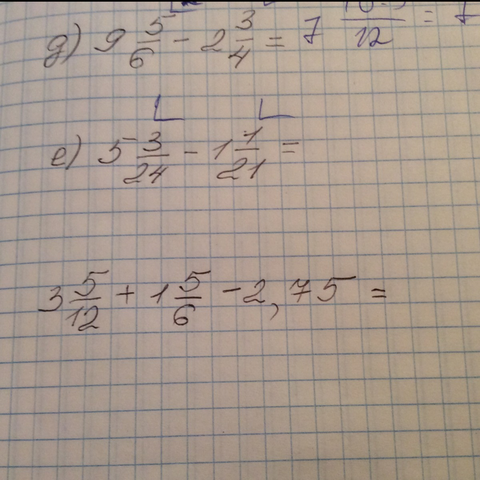 д) 9 5/6 - 2 3/4 = 7 /12 = 7
е) 5 3/24 - 1 1/21 =
3 5/12 + 1 5/6 - 2,75 =